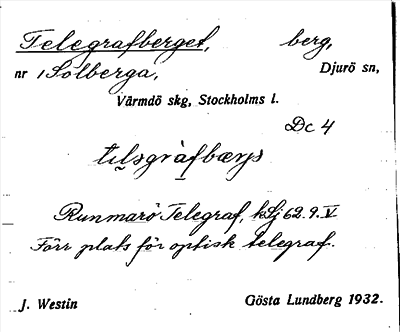 Telegrafberget, berg,
nr 1 Solberga, Djurö sn,
Värmdö skg, Stockholms l.
Dc 4
Runmarö Telegraf, kSj 62.9.V
Förr plats för optisk telegraf.
J. Westin Gösta Lundberg 1932.